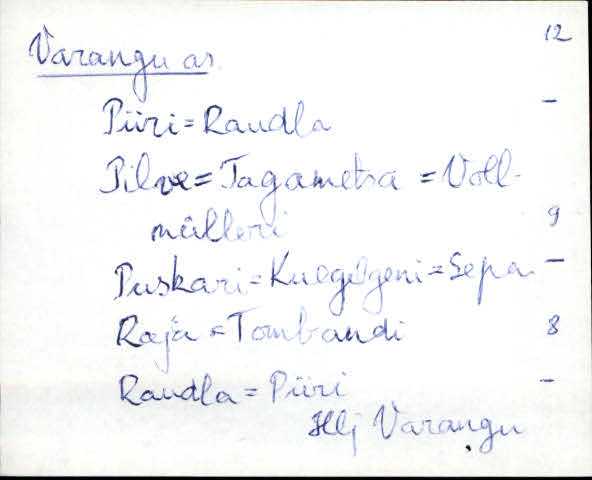 12
Varangu as.
Piiri = Raudla -
Pilve = Tagametsa = Voll-
mülleri 9
Puskari = Kuegelgeni = Sepa -
Raja = Tombandi 8
Raudla = Piiri -
Hlj Varangu